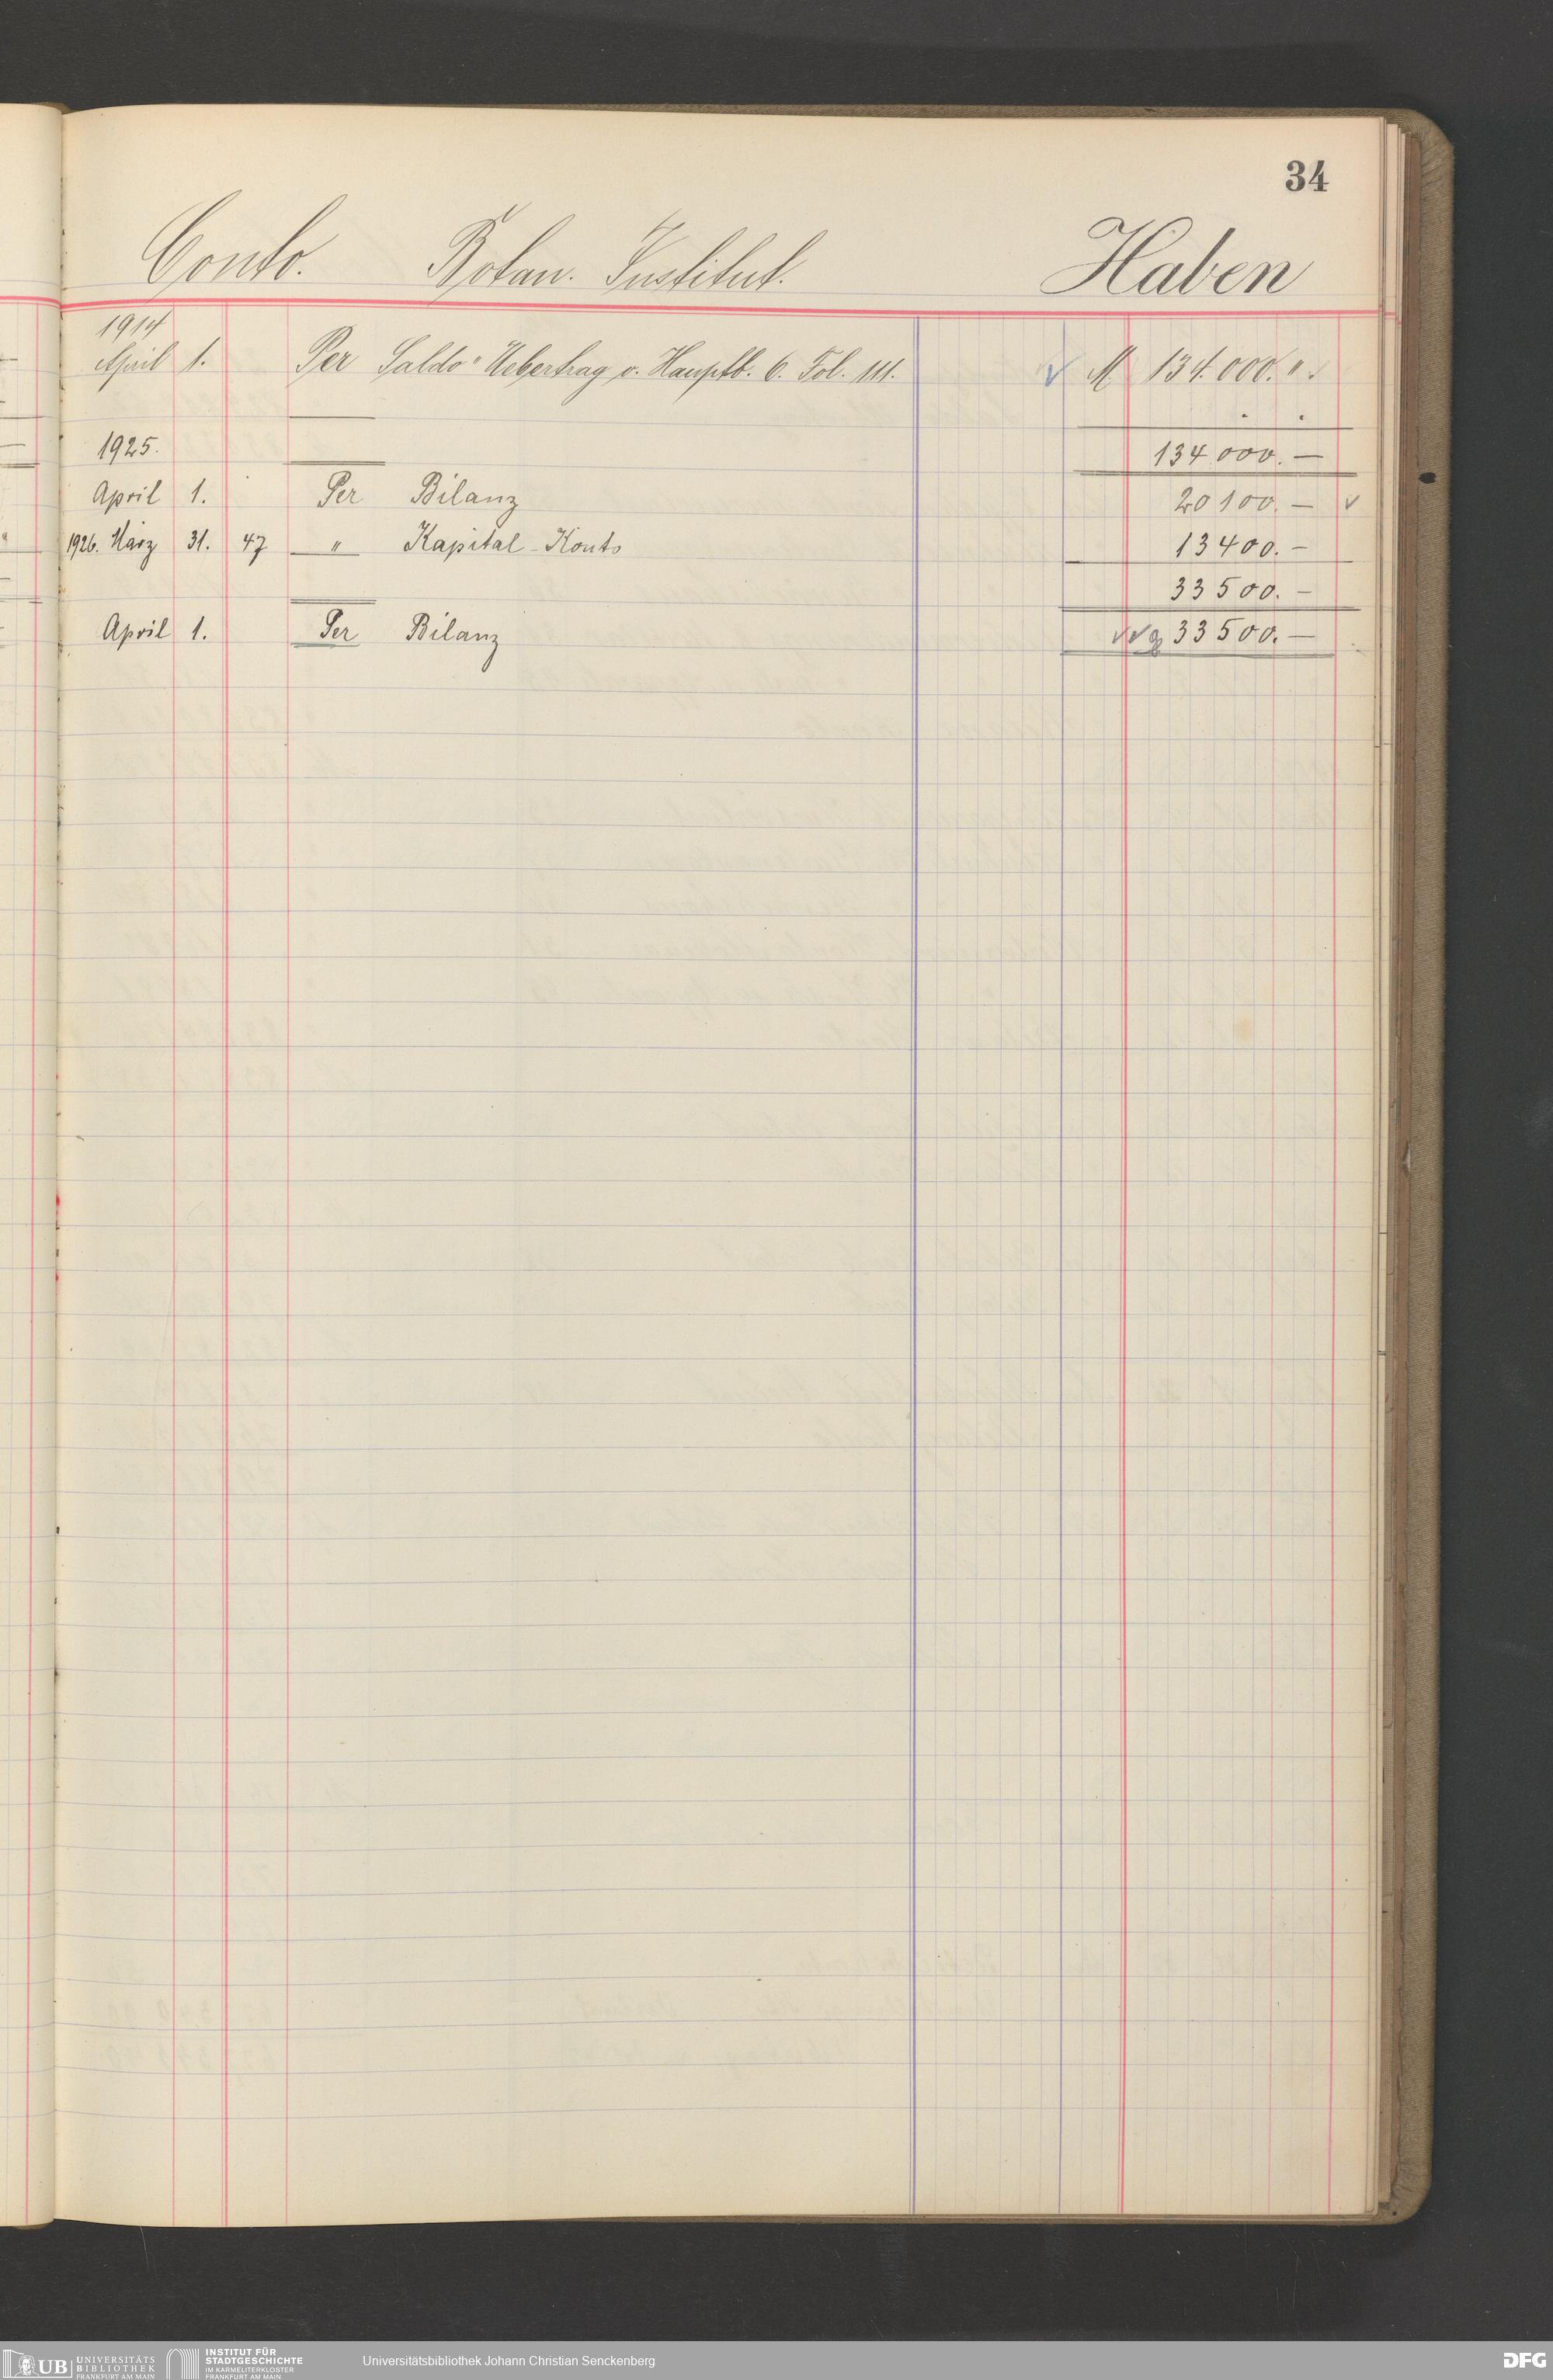 34
Conto. Botan. Institut. Haben
1914
April 1. Per Saldo" Uebertrag v. Hauptb. 6. Fol. 111. M 134.000. "
1925. 134 000. —
April 1. Per Bilanz 20 100. —
1926. März 31. 47 " Kapital-Konto 13 400. —
33 500. —
April 1. Per Bilanz 33 500. —
UB UNIVERSITÄTS BIBLIOTHEK FRANKFURT AM MAIN
INSTITUT FÜR STADTGESCHICHTE IM KARMELITERKLOSTER FRANKFURT AM MAIN
Universitätsbibliothek Johann Christian Senckenberg
DFG